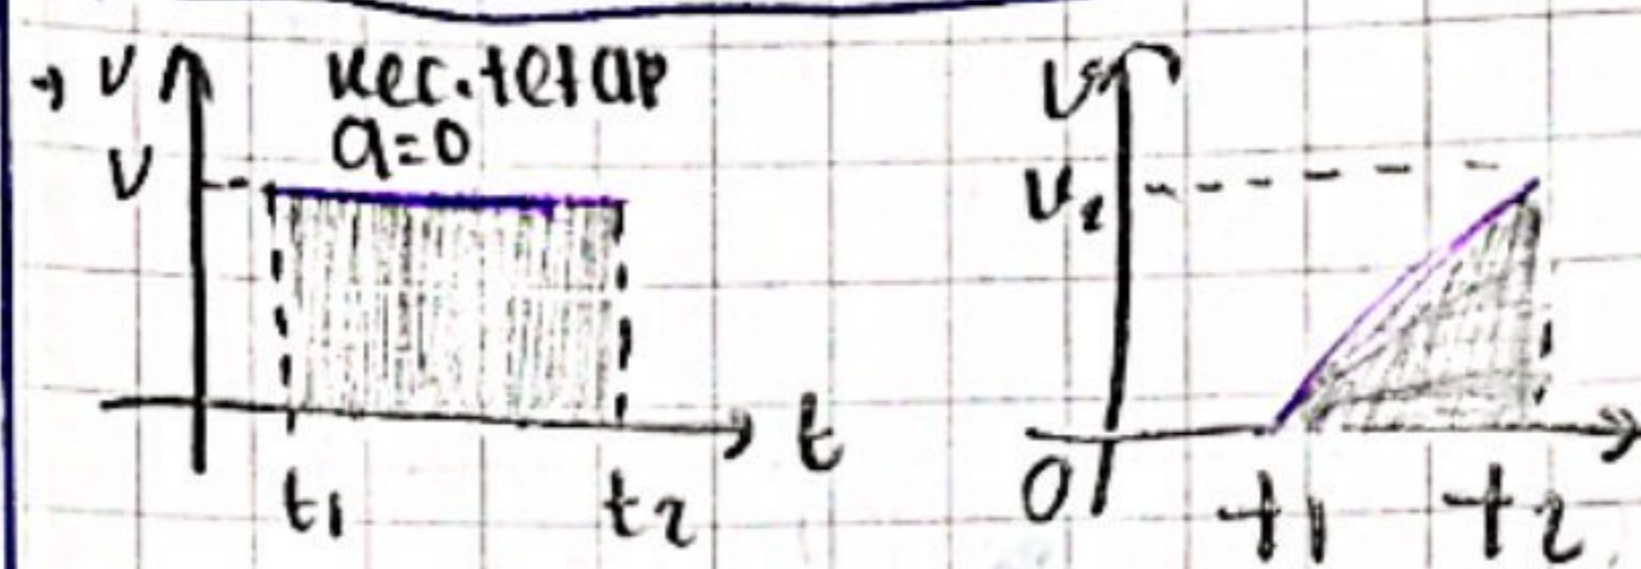 → V kec.tetap
a=0
V
t
t1 t2
V
V2
0 t1 t2